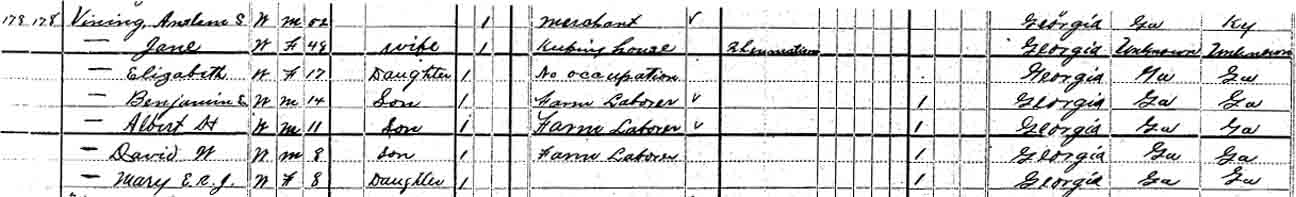 178 178 Vining, Anslem S. W M 52 1 Merchant ✓ Georgia Ga Ky
— Jane W F 48 Wife 1 Keeping house Rheumatism Georgia Unknown Unknown
— Elizabeth W F 17 Daughter 1 No occupation Georgia Ga Ga
— Benjamin E W M 14 Son 1 Farm Laborer ✓ 1 Georgia Ga Ga
— Albert H W M 11 Son 1 Farm Laborer ✓ 1 Georgia Ga Ga
— David W W M 8 Son 1 Farm Laborer 1 Georgia Ga Ga
— Mary E. R. J. W F 8 Daughter 1 1 Georgia Ga Ga